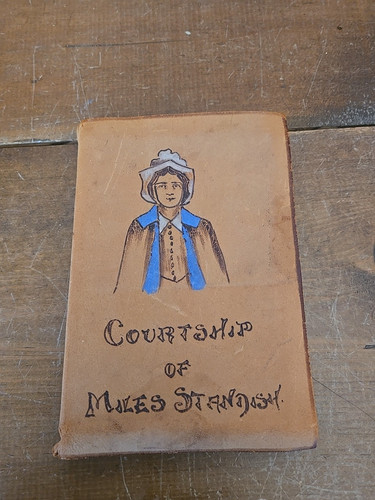 COURTSHIP
OF
MILES STANDISH.